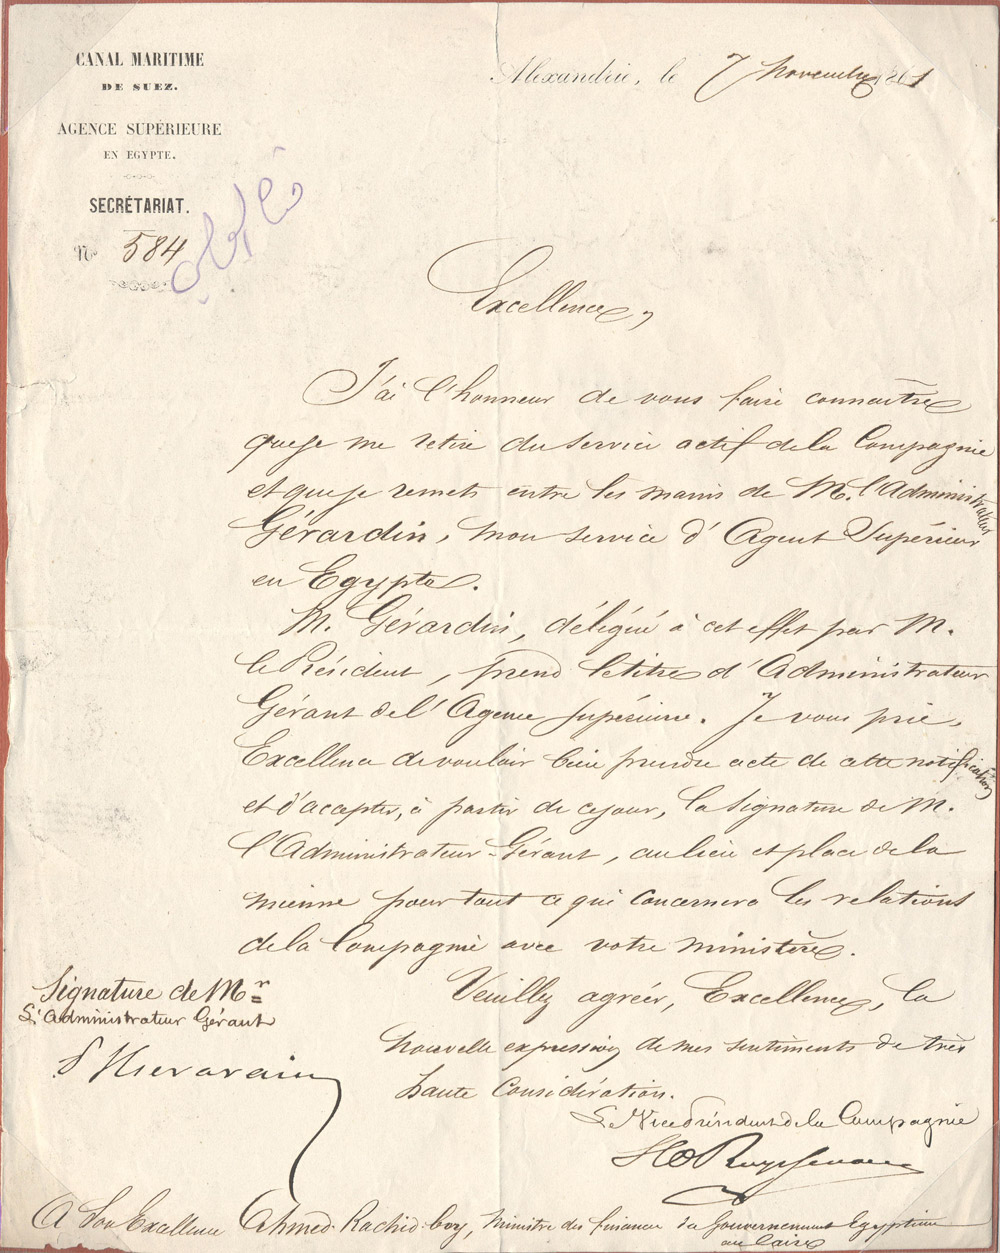 CANAL MARITIME
DE SUEZ.
AGENCE SUPÉRIEURE
EN EGYPTE.
SECRÉTARIAT.
No 584
Alexandrie, le 7 Novembre 1861
Excellence,
J'ai l'honneur de vous faire connaître
que je me retire du service actif de la Compagnie
et que je remets entre les mains de M. l'Administrateur
Gérardin, mon service d'Agent Supérieur
en Egypte.
M. Gérardin, délégué à cet effet par M.
le Président, prend le titre d'Administrateur
Gérant de l'Agence Supérieure. Je vous prie,
Excellence de vouloir bien prendre acte de cette notification
et d'accepter, à partir de ce jour, la signature de M.
l'Administrateur-Gérant, au lieu et place de la
mienne pour tout ce qui concernera les relations
de la Compagnie avec votre ministère.
Veuillez agréer, Excellence, la
nouvelle expression de mes sentiments de très
haute considération.
Le Vice Président de la Compagnie
Signature de Mr
L'Administrateur Gérant
A Son Excellence Ahmed Rachid bey, Ministre des finances du Gouvernement Egyptien
au Caire